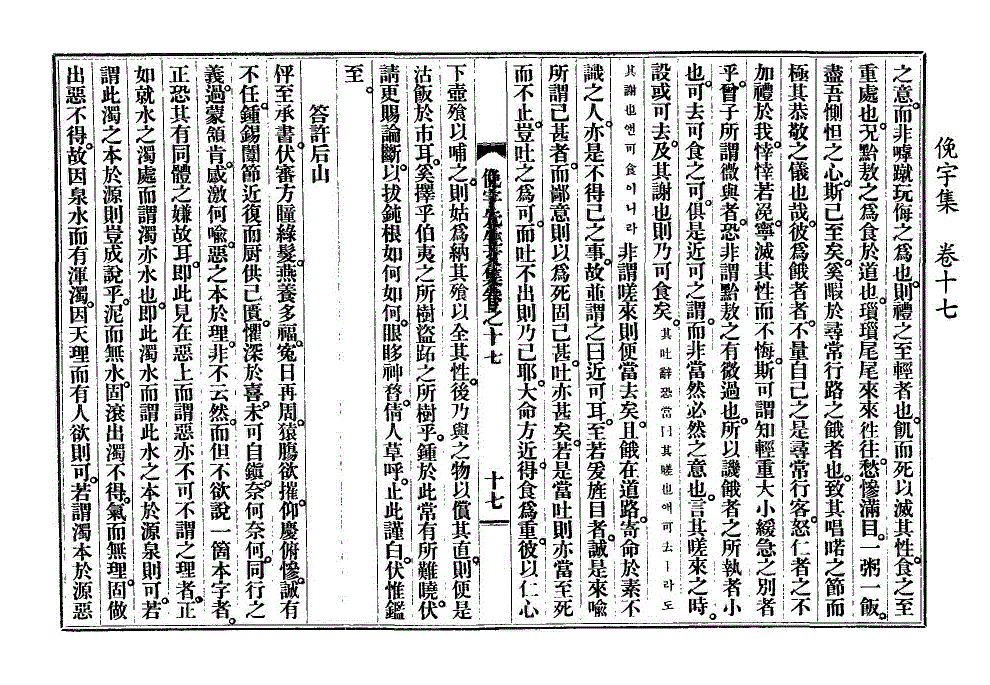 俛宇集　卷十七
之意。而非嘑蹴玩侮之爲也。則禮之至輕者也。飢而死以滅其性。食之至
重處也。况黔敖之爲食於道也。瑣瑣尾尾來來往往。愁慘滿目。一粥一飯。
盡吾惻怛之心。斯已至矣。奚暇於尋常行路之餓者也。致其唱喏之節而
極其恭敬之儀也哉。彼爲餓者者。不量自己之是尋常行客。怒仁者之不
加禮於我。悻悻若浼。寧滅其性而不悔。斯可謂知輕重大小緩急之別者
乎。曾子所謂微與者。恐非謂黔敖之有微過也。所以譏餓者之所執者小
也。可去可食之可。俱是近可之謂。而非當然必然之意也。言其嗟來之時。
設或可去。及其謝也則乃可食矣。其吐辭恐當曰其嗟也애可去ㅣ라도
其謝也앤可食이니라 非謂嗟來則便當去矣。且餓在道路。寄命於素不
識之人。亦是不得已之事。故並謂之曰近可耳。至若爰旌目者。誠是來喩
所謂已甚者。而鄙意則以爲死固已甚。吐亦甚矣。若是當吐則亦當至死
而不止。豈吐之爲可。而吐不出則乃已耶。大命方近。得食爲重。彼以仁心
俛宇先生文集卷之十七　十七
下壺飱以哺之。則姑爲納其飱以全其性。後乃與之物以償其直。則便是
沽飯於市耳。奚擇乎伯夷之所樹盜跖之所樹乎。鍾於此常有所難曉。伏
請更賜論斷。以拔鈍根如何如何。眼眵神瞀。倩人草呼。止此謹白。伏惟鑑
至。
答許后山
伻至承書。伏審方瞳綠髮。燕養多福。寃日再周。猿膓欲摧。仰慶俯慘。誠有
不任。鍾錫闈節近復。而厨供已匱。懼深於喜。未可自鎭。奈何奈何。同行之
義。過蒙頷肯。感激何喩。惡之本於理。非不云然。而但不欲說一箇本字者。
正恐其有同體之嫌故耳。卽此見在惡上而謂惡亦不可不謂之理者。正
如就水之濁處而謂濁亦水也。卽此濁水而謂此水之本於源泉則可。若
謂此濁之本於源則豈成說乎。泥而無水。固滾出濁不得。氣而無理。固做
出惡不得。故因泉水而有渾濁。因天理而有人欲則可。若謂濁本於源惡